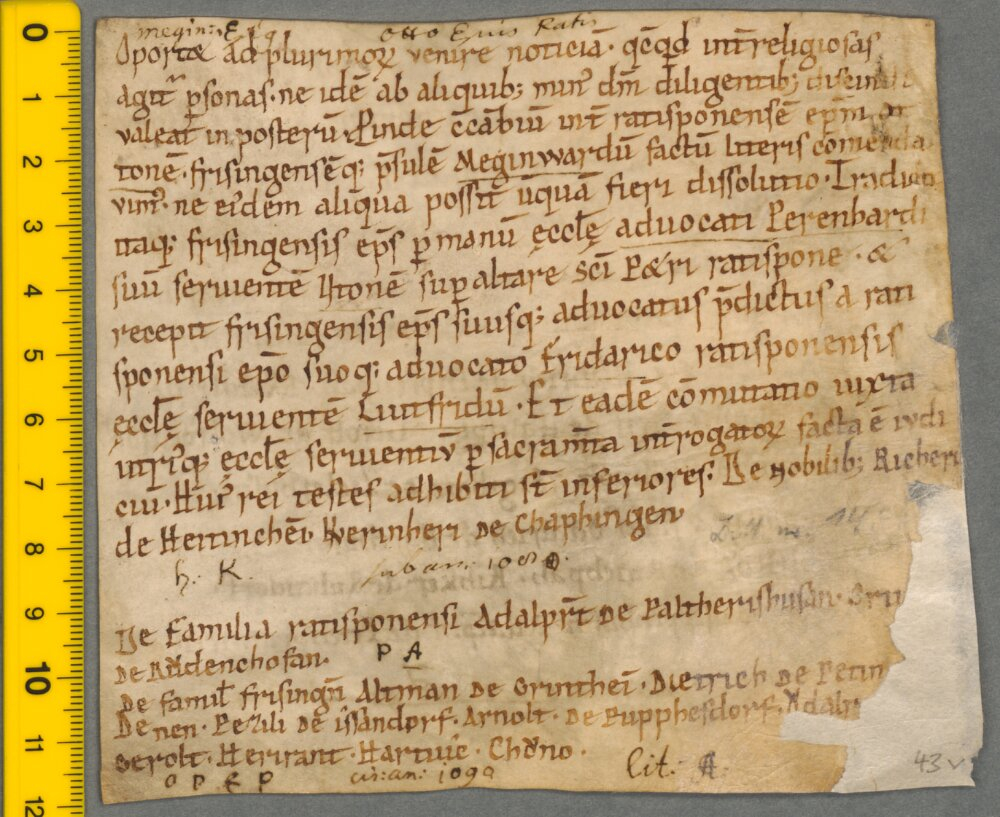 megin: E f g otto Epis Ratis
Oportæ ad plurimoꝝ venire noticiā · qͨqͥd int̄religiosas
agit᷑ p̱sonas · ne idē ab aliquib; min᷒ dm̄ diligentib;
valeat in posterū · Pinde c̄cābiū int̄ ratisponensē ep̄m
tonē · frisingensēq; p̄sulē Meginwardū factū literis cōmenda
vim᷒ · ne ei᷒dem aliqua possit ūquā fieri dissolutio · Tradidit
itaq; frisingensis ep̄s p̱ manū ęccłę advocati Perenhardi
suū servientē Hitonē sup̱ altare sc̄i P&ri ratispone · &
recepit frisingensis ep̄s suusq; advocatus p̄dictus a rati
sponensi ep̄o suoq; advocato Fridarico ratisponensis
ęccłę servientē Liutfridū · Et eadē cōmutatio iuxta
utri᷒q; ęccłę servientiū p̱ sacram̄ta int̄rogatoꝝ facta ē iudi
ciū · Hui᷒ rei testes adhibiti st̄ inferiores · De Nobilib; Richeri
de Hettinchēi · Werinheri de Chaphingen ·
h. K. sub an: 1080.
De Familia ratisponensi Adalpr̄t de Paltherishusan ·
de Růdenchofan ·
P A
De famił frisingn̄ Altman de Grintheī · Dietrich de Petin
De nen · Pezili de issandorf · Arnolt · de Rupphesdorf · Adalp
Gerolt · Herirant · Hartuuic · Chǒno ·
O P E P cir: an: 1090 lit: A.
43 v